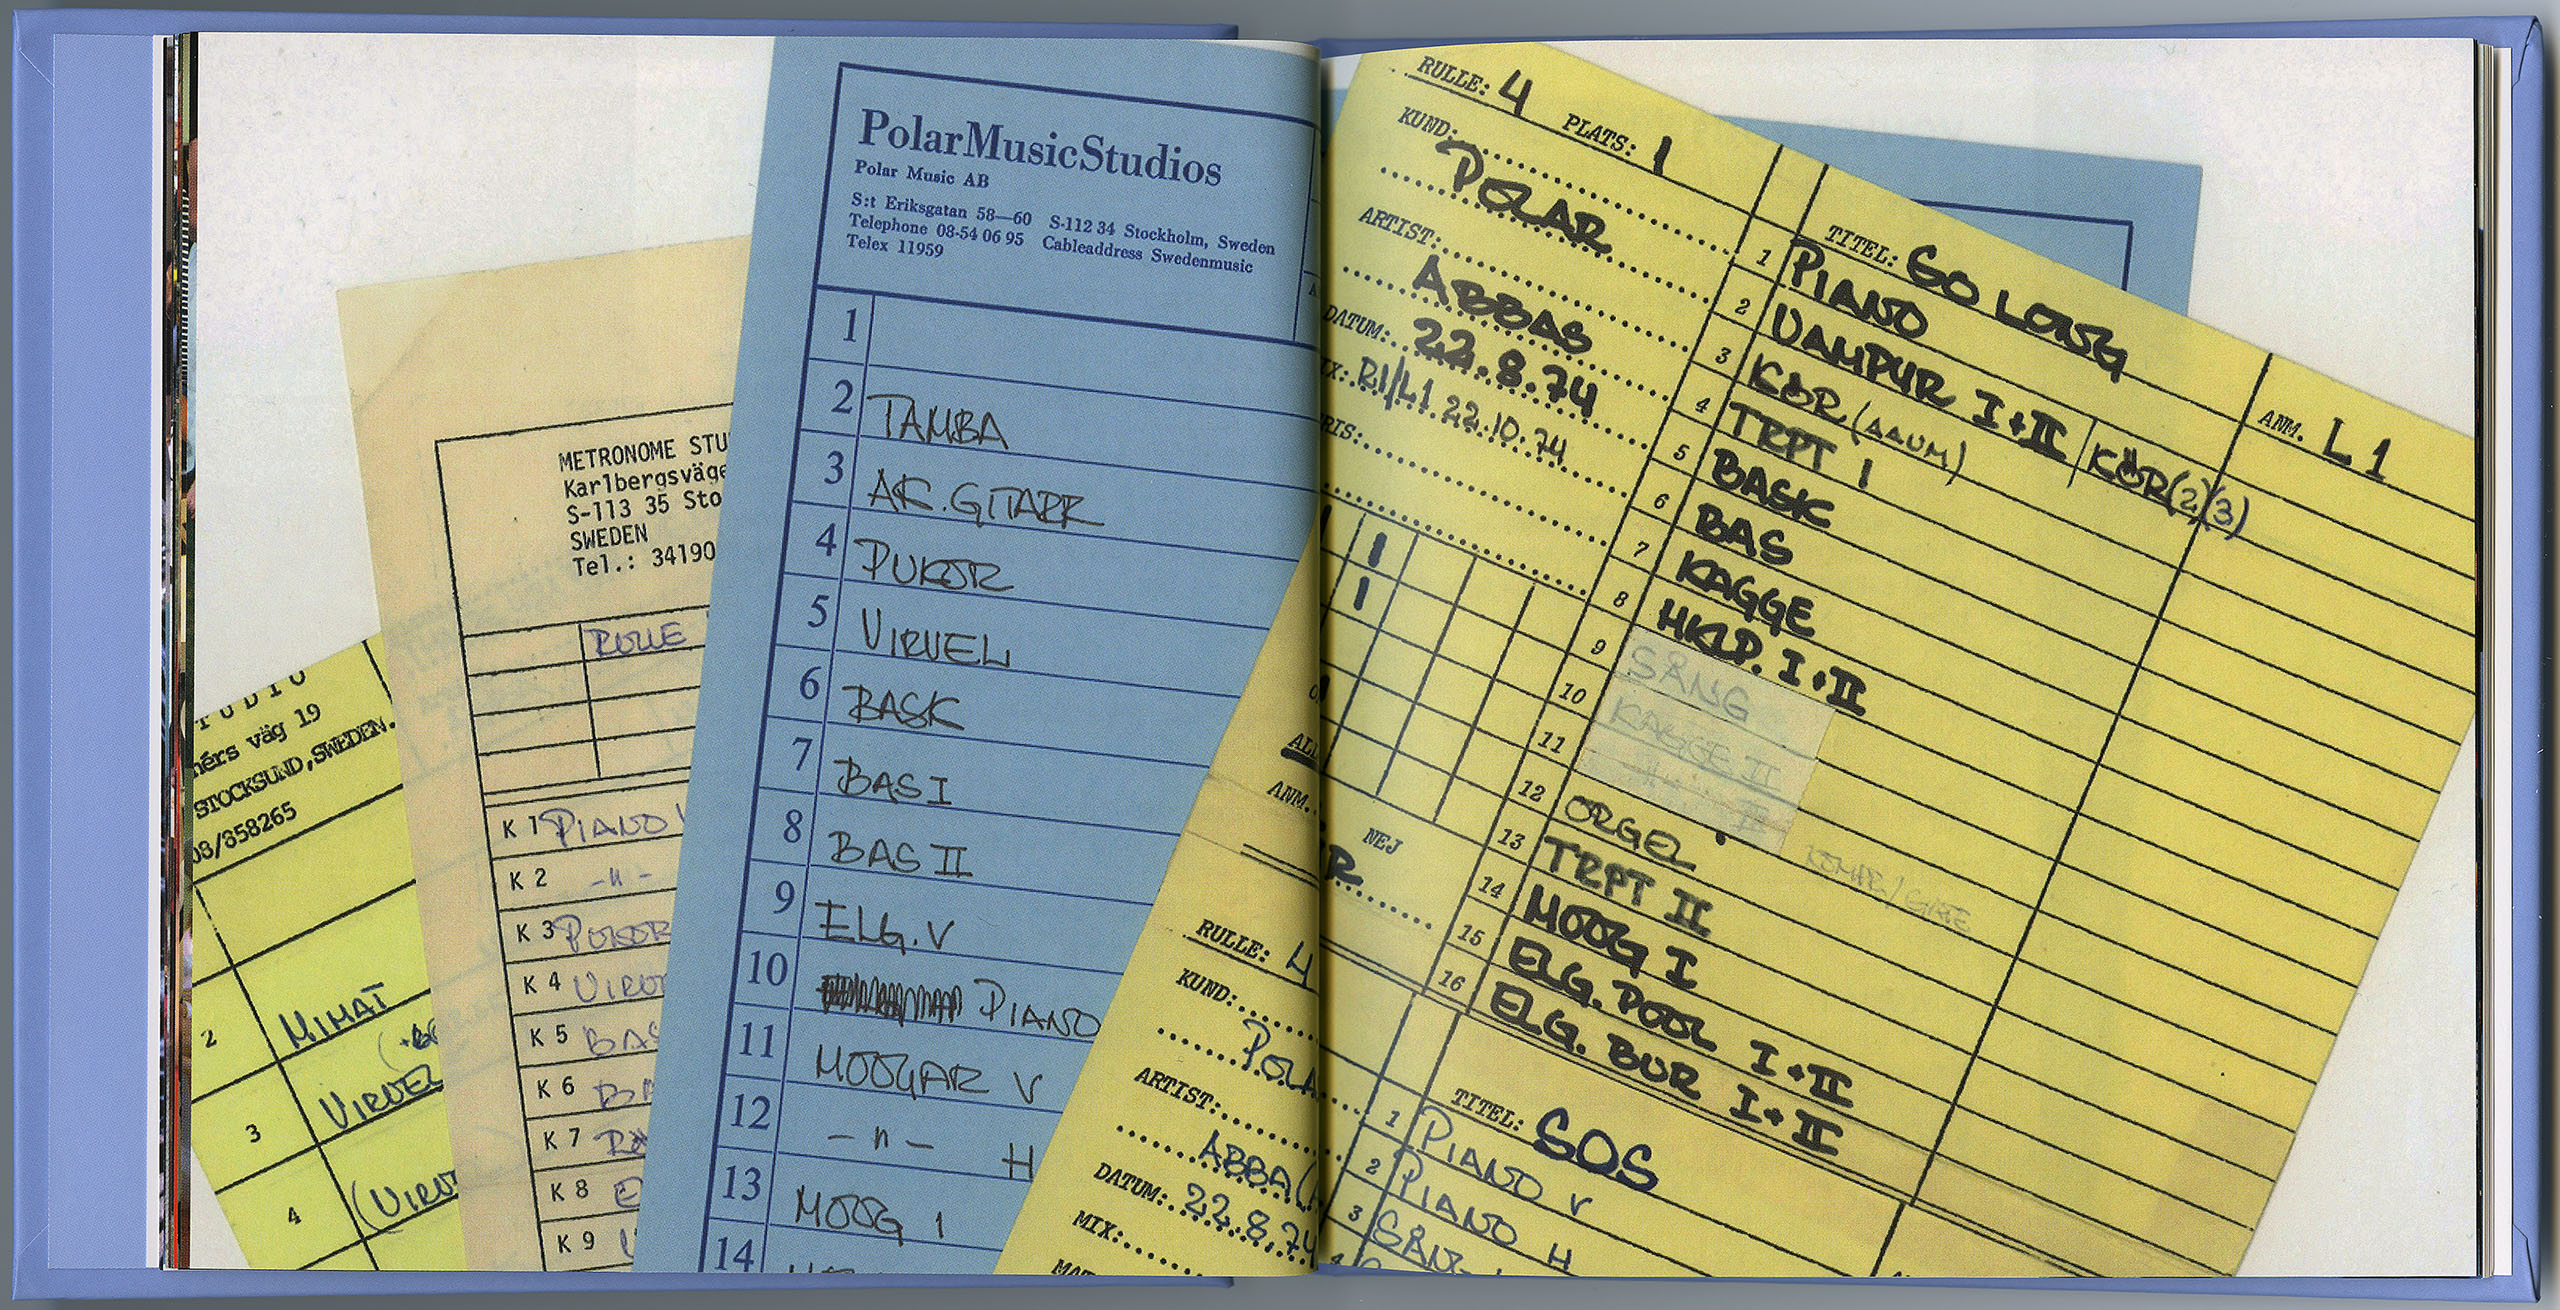 TUDIO
nérs väg 19
STOCKSUND, SWEDEN.
08/858265
2 MIMAT
3 VIRVEL
4
METRONOME STU
Karlbergsväge
S-113 35 Sto
SWEDEN
Tel.: 34190
RULLE
K 1 PIANO V
K 2 -"-
K 3 PUKOR
K 4 VIRV
K 5 BAS
K 6 BA
K 7
K 8 E
K 9
PolarMusicStudios
Polar Music AB
S:t Eriksgatan 58—60 S-112 34 Stockholm, Sweden
Telephone 08-54 06 95 Cableaddress Swedenmusic
Telex 11959
1
2 TAMBA
3 AK. GITARR
4 PUKOR
5 VIRVEL
6 BASK
7 BAS I
8 BAS II
9 ELG. V
10 PIANO
11 MOOGAR V
12 -"- H
13 MOOG 1
14
RULLE: 4 PLATS: 1
KUND: POLAR
ARTIST: ABBAS
DATUM: 22.8.74
IX: R1/L1 22.10.74
RIS:
TITEL: SO LONG
ANM. L1
1 PIANO
2 VAMPYR I+II KÖR(2)(3)
3 KÖR (AAUM)
4 TRPT I
5 BASK
6 BAS
7 KAGGE
8 HKLP. I+II
9 SÅNG
10 KAGGE II
11
12 ORGEL
13 TRPT II
14 MOOG I
15 ELG. POOL I+II
16 ELG. BUR I+II
ANM.
NEJ
RULLE: 4
KUND: POLA
ARTIST: ABBA (
DATUM: 22.8.74
MIX:
MAT
TITEL: SOS
1 PIANO V
2 PIANO H
3 SÅN
4